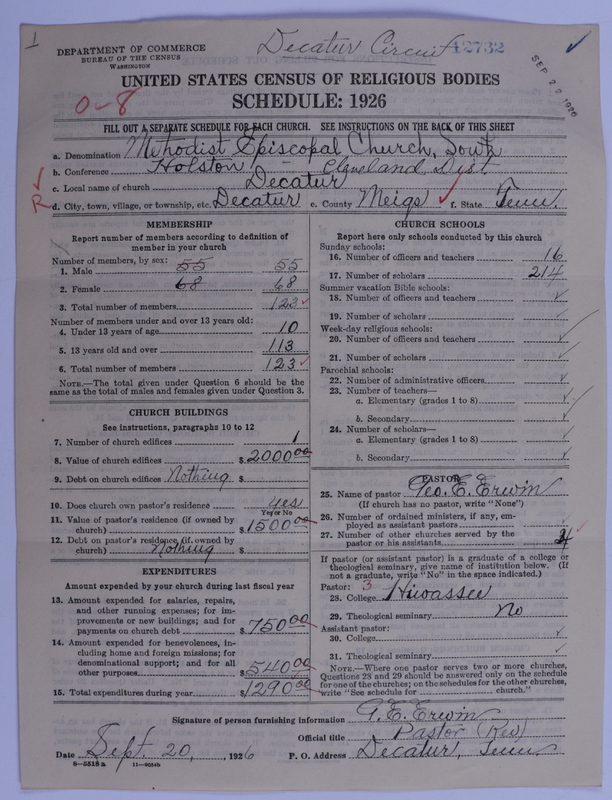 1
DEPARTMENT OF COMMERCE
BUREAU OF THE CENSUS
WASHINGTON
Decatur Circuit
12732
SEP 27 1926
UNITED STATES CENSUS OF RELIGIOUS BODIES
SCHEDULE: 1926
0-8
FILL OUT A SEPARATE SCHEDULE FOR EACH CHURCH. SEE INSTRUCTIONS ON THE BACK OF THIS SHEET
a. Denomination Methodist Episcopal Church, South
b. Conference Holston - Cleveland Dist.
c. Local name of church Decatur
R d. City, town, village, or township, etc. Decatur e. County Meigs f. State Tenn
MEMBERSHIP
Report number of members according to definition of
member in your church
Number of members, by sex:
1. Male 55 55
2. Female 68 68
3. Total number of members 123
Number of members under and over 13 years old:
4. Under 13 years of age 10
5. 13 years old and over 113
6. Total number of members 123
NOTE.—The total given under Question 6 should be the
same as the total of males and females given under Question 3.
CHURCH BUILDINGS
See instructions, paragraphs 10 to 12
7. Number of church edifices 1
8. Value of church edifices $ 2000 00
9. Debt on church edifices Nothing $
10. Does church own pastor's residence yes
Yes or No
11. Value of pastor's residence (if owned by
church) $ 1500 00
12. Debt on pastor's residence (if owned by
church) Nothing $
EXPENDITURES
Amount expended by your church during last fiscal year
13. Amount expended for salaries, repairs,
and other running expenses; for im-
provements or new buildings; and for
payments on church debt $ 750 00
14. Amount expended for benevolences, in-
cluding home and foreign missions; for
denominational support; and for all
other purposes $ 540 00
15. Total expenditures during year $ 1290 00
CHURCH SCHOOLS
Report here only schools conducted by this church
Sunday schools:
16. Number of officers and teachers 16
17. Number of scholars 214
Summer vacation Bible schools:
18. Number of officers and teachers
19. Number of scholars
Week-day religious schools:
20. Number of officers and teachers
21. Number of scholars
Parochial schools:
22. Number of administrative officers
23. Number of teachers—
a. Elementary (grades 1 to 8)
b. Secondary
24. Number of scholars—
a. Elementary (grades 1 to 8)
b. Secondary
PASTOR
25. Name of pastor Geo. E. Erwin
(If church has no pastor, write "None")
26. Number of ordained ministers, if any, em-
ployed as assistant pastors
27. Number of other churches served by the
pastor or his assistants
If pastor (or assistant pastor) is a graduate of a college or
theological seminary, give name of institution below. (If
not a graduate, write "No" in the space indicated.)
Pastor: 3
28. College Hiwassee
29. Theological seminary No
Assistant pastor:
30. College
31. Theological seminary
NOTE.—Where one pastor serves two or more churches,
Questions 28 and 29 should be answered only on the schedule
for one of the churches; on the schedules for the other churches,
write "See schedule for church."
Signature of person furnishing information G. E. Erwin
Official title Pastor (Rev)
Date Sept. 20, 1926 P. O. Address Decatur, Tenn
8-5518 a